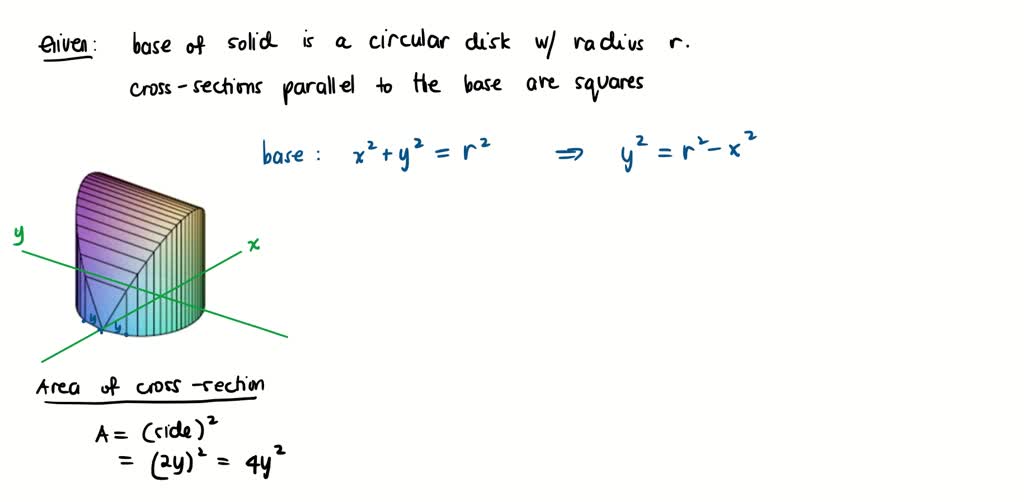 Given: base of solid is a circular disk w/ radius r.
cross-sections parallel to the base are squares
base: x² + y² = r² ⇒ y² = r² - x²
y
x
y y
Area of cross-section
A = (side)²
= (2y)² = 4y²